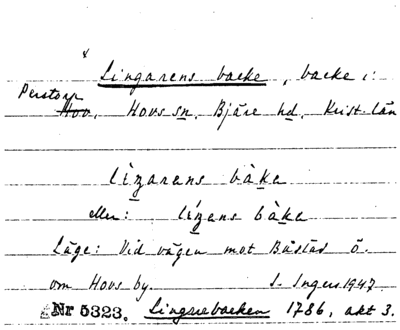 x
Lingarens backe, backe i:
Perstorp
Hov, Hovs sn, Bjäre hd, Krist. län
lìŋarens bàka
eller: líŋens bàka
Läge: Vid vägen mot Båstad ö.
om Hovs by. S. Ingers 1947
Nr 5323. Lingsebacken 1786, akt 3.